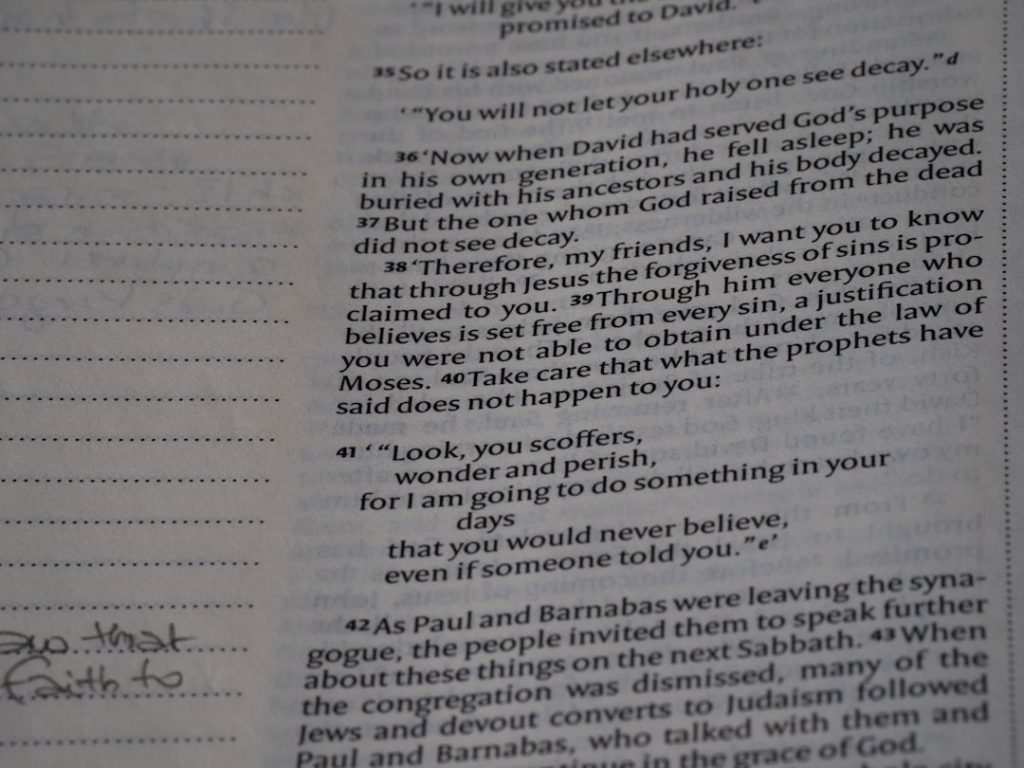 ‘“I will give you the
promised to David.
35 So it is also stated elsewhere:
‘“You will not let your holy one see decay.”d
36 ‘Now when David had served God’s purpose
in his own generation, he fell asleep; he was
buried with his ancestors and his body decayed.
37 But the one whom God raised from the dead
did not see decay.
38 ‘Therefore, my friends, I want you to know
that through Jesus the forgiveness of sins is pro-
claimed to you. 39 Through him everyone who
believes is set free from every sin, a justification
you were not able to obtain under the law of
Moses. 40 Take care that what the prophets have
said does not happen to you:
41 ‘“Look, you scoffers,
wonder and perish,
for I am going to do something in your
days
that you would never believe,
even if someone told you.”e’
42 As Paul and Barnabas were leaving the syna-
gogue, the people invited them to speak further
about these things on the next Sabbath. 43 When
the congregation was dismissed, many of the
Jews and devout converts to Judaism followed
Paul and Barnabas, who talked with them and
continue in the grace of God.
that
faith to